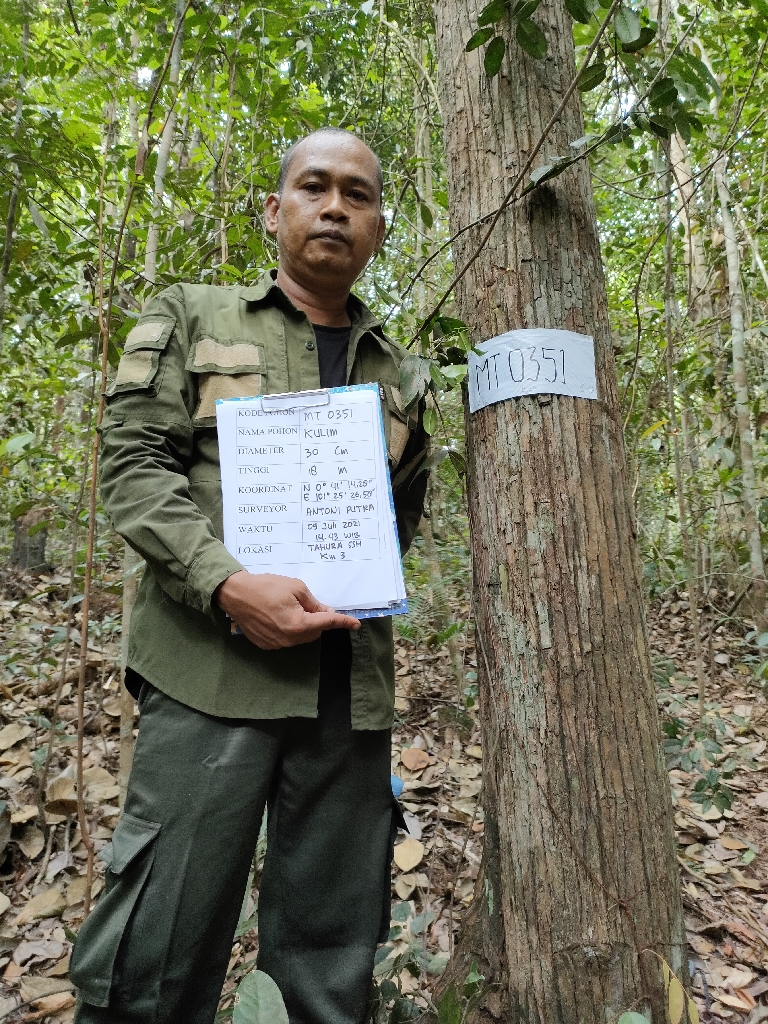 MT 0351
KODE POHON MT 0351
NAMA POHON KULIM
DIAMETER 30 Cm
TINGGI 18 m
KOORDINAT N 0° 41' 14,25"
E 101° 25' 26,59"
SURVEYOR ANTONI PUTRA
WAKTU 09 Juli 2021
14.43 WIB
LOKASI TAHURA SSH
Km 3